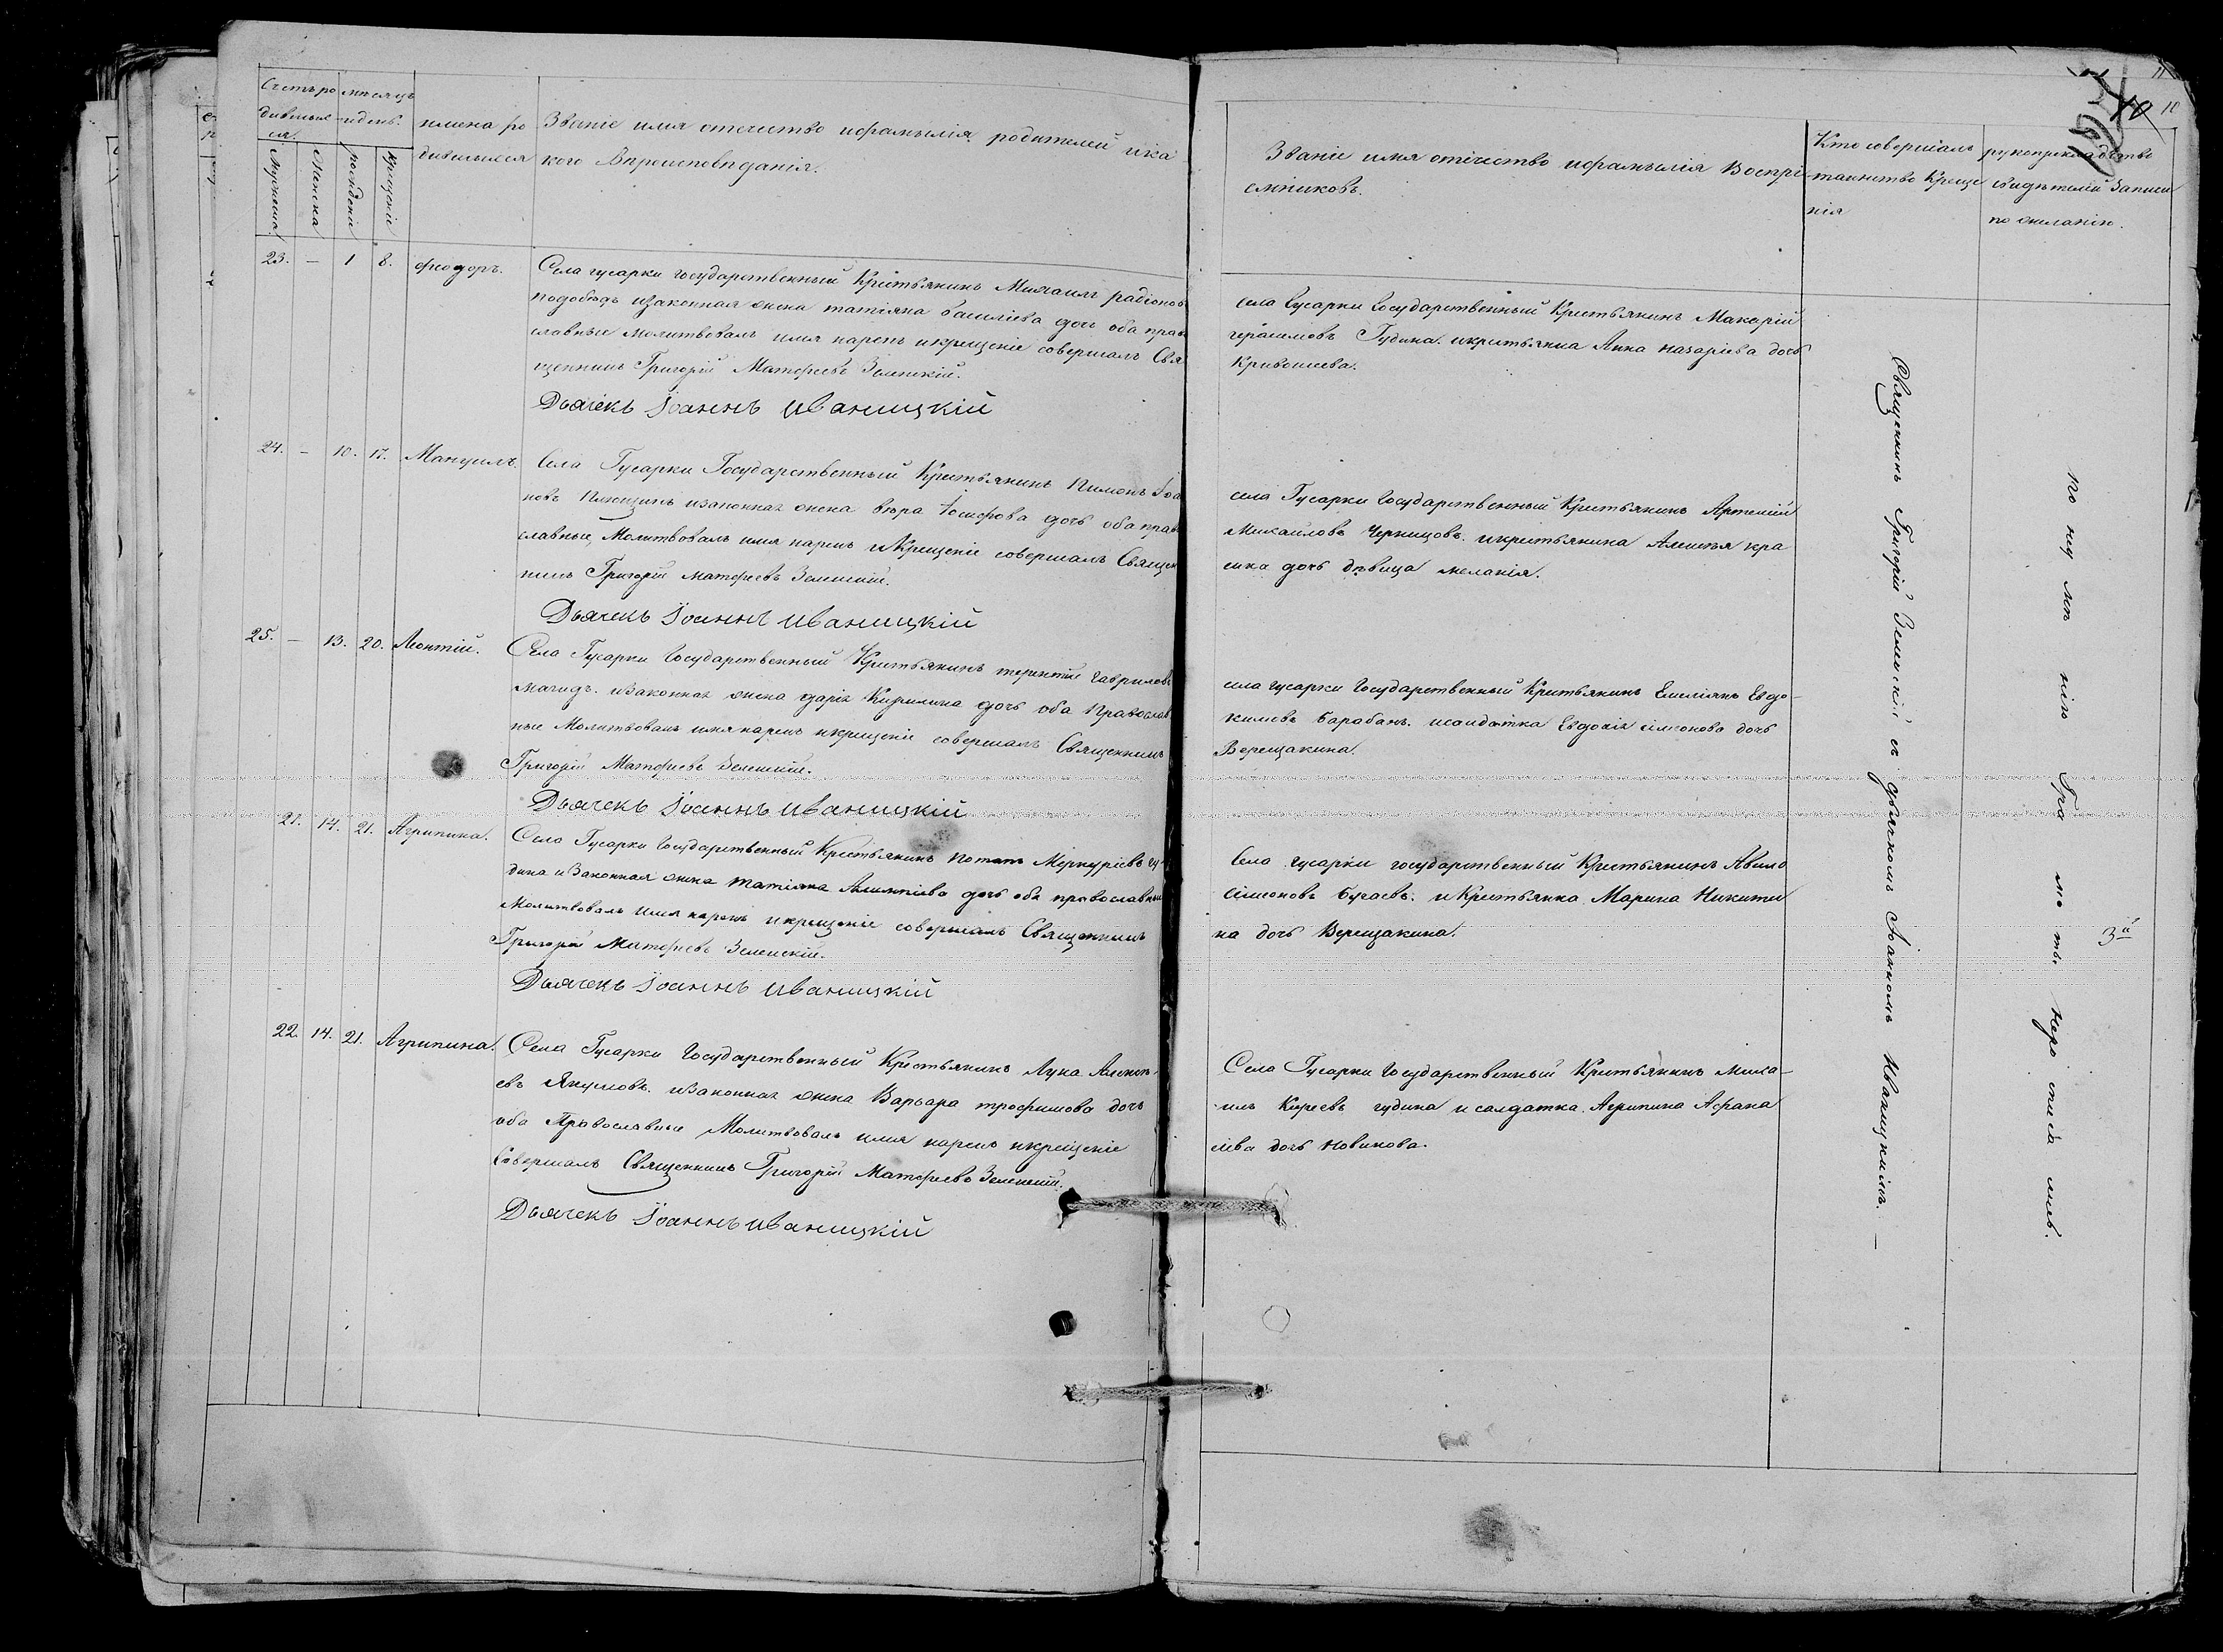 Счетъ ро
дивших
ся.
Мужеска
Женска
мѣсяцъ
и день.
рожденіе
Крещеніе
имена ро
дившихся
Званіе имя отечество и фамылія родителей и ка
кого Вѣроисповѣданія.
23. — 1 8. феодоръ.
Села гусарки Государственный Крестьянинъ Михаилъ радіоновъ
подобѣдъ и законная жена татіяна василіева дочь оба право
славные молитвовалъ имя нарекъ и крещеніе совершалъ Свя
щенникъ Григорій Матфеевъ Зеленскій.
Дьячекъ Іоаннъ Иваницкій
24. — 10. 17. Мануилъ.
Села Гусарки Государственный Крестьянинъ Пимонъ Іоа
новъ и законная жена вѣра Іосифова дочь оба право
славные, Молитвовалъ имя нарекъ и Крещеніе совершалъ Священ
никъ Григорій матфеевъ Зеленскій.
Дьячекъ Іоаннъ Иваницкій
25. — 13. 20. Леонтій.
Села Гусарки Государственный Крестьянинъ терентій гавриловъ
и законная жена дарія Кирилина дочь оба Православ
ные Молитвовалъ имя нарекъ и крещеніе совершалъ Священникъ
Григорій Матфеевъ Зеленскій.
Дьячекъ Іоаннъ Иваницкій
21. 14. 21. Агрипина.
Села Гусарки Государственный Крестьянинъ потапъ Меркуріевъ гу
дина и Законная жена татіяна Алимпіева дочь оба православные
Молитвовалъ имя нарекъ и крещеніе совершалъ Священникъ
Григорій Матфеевъ Зеленскій.
Дьячекъ Іоаннъ Иваницкій
22. 14. 21. Агрипина.
Села Гусарки Государственный Крестьянинъ Лука Алексѣ
евъ Якушовъ. и законная жена Варвара трофимова дочь
оба Православные Молитвовалъ имя нарекъ и крещеніе
Совершалъ Священникъ Григорій Матфеевъ Зеленскій.
Дьячекъ Іоаннъ Иваницкій
11
10 10
Званіе имя отечество и фамылія Воспрі
емниковъ.
Кто совершалъ
таинство Креще
нія
рукоприкладство
свидѣтелей Записи
по желанію.
села Гусарки Государственный Крестьянинъ Макарій
герасимовъ Гудина. и крестьянка Анна назаріева дочь
Кривошеева.
села Гусарки Государственный Крестьянинъ Артемій
Михайловъ Черницовъ. и крестьянина Алексея кра
дочь дѣвица меланія.
села гусарки Государственный Крестьянинъ Емеліянъ Евдо-
кимовъ барабанъ. и солдатка Евдокія сімеонова дочь
Верещакина.
Села гусарки государственный Крестьянинъ Авило
сімеоновъ бугаевъ. и Крестьянка Марина Никити
на дочь Верещакина.
Села Гусарки Государственный Крестьянинъ Миха-
илъ Киреевъ гудина и салдатка Агрипина Афана
сіева дочь новикова.
Священникъ Григорій Зеленскій съ дьячкомъ Іоанномъ Иваницкимъ. —
по не имѣ нію Гра мо ты. неро списа лись.
3й